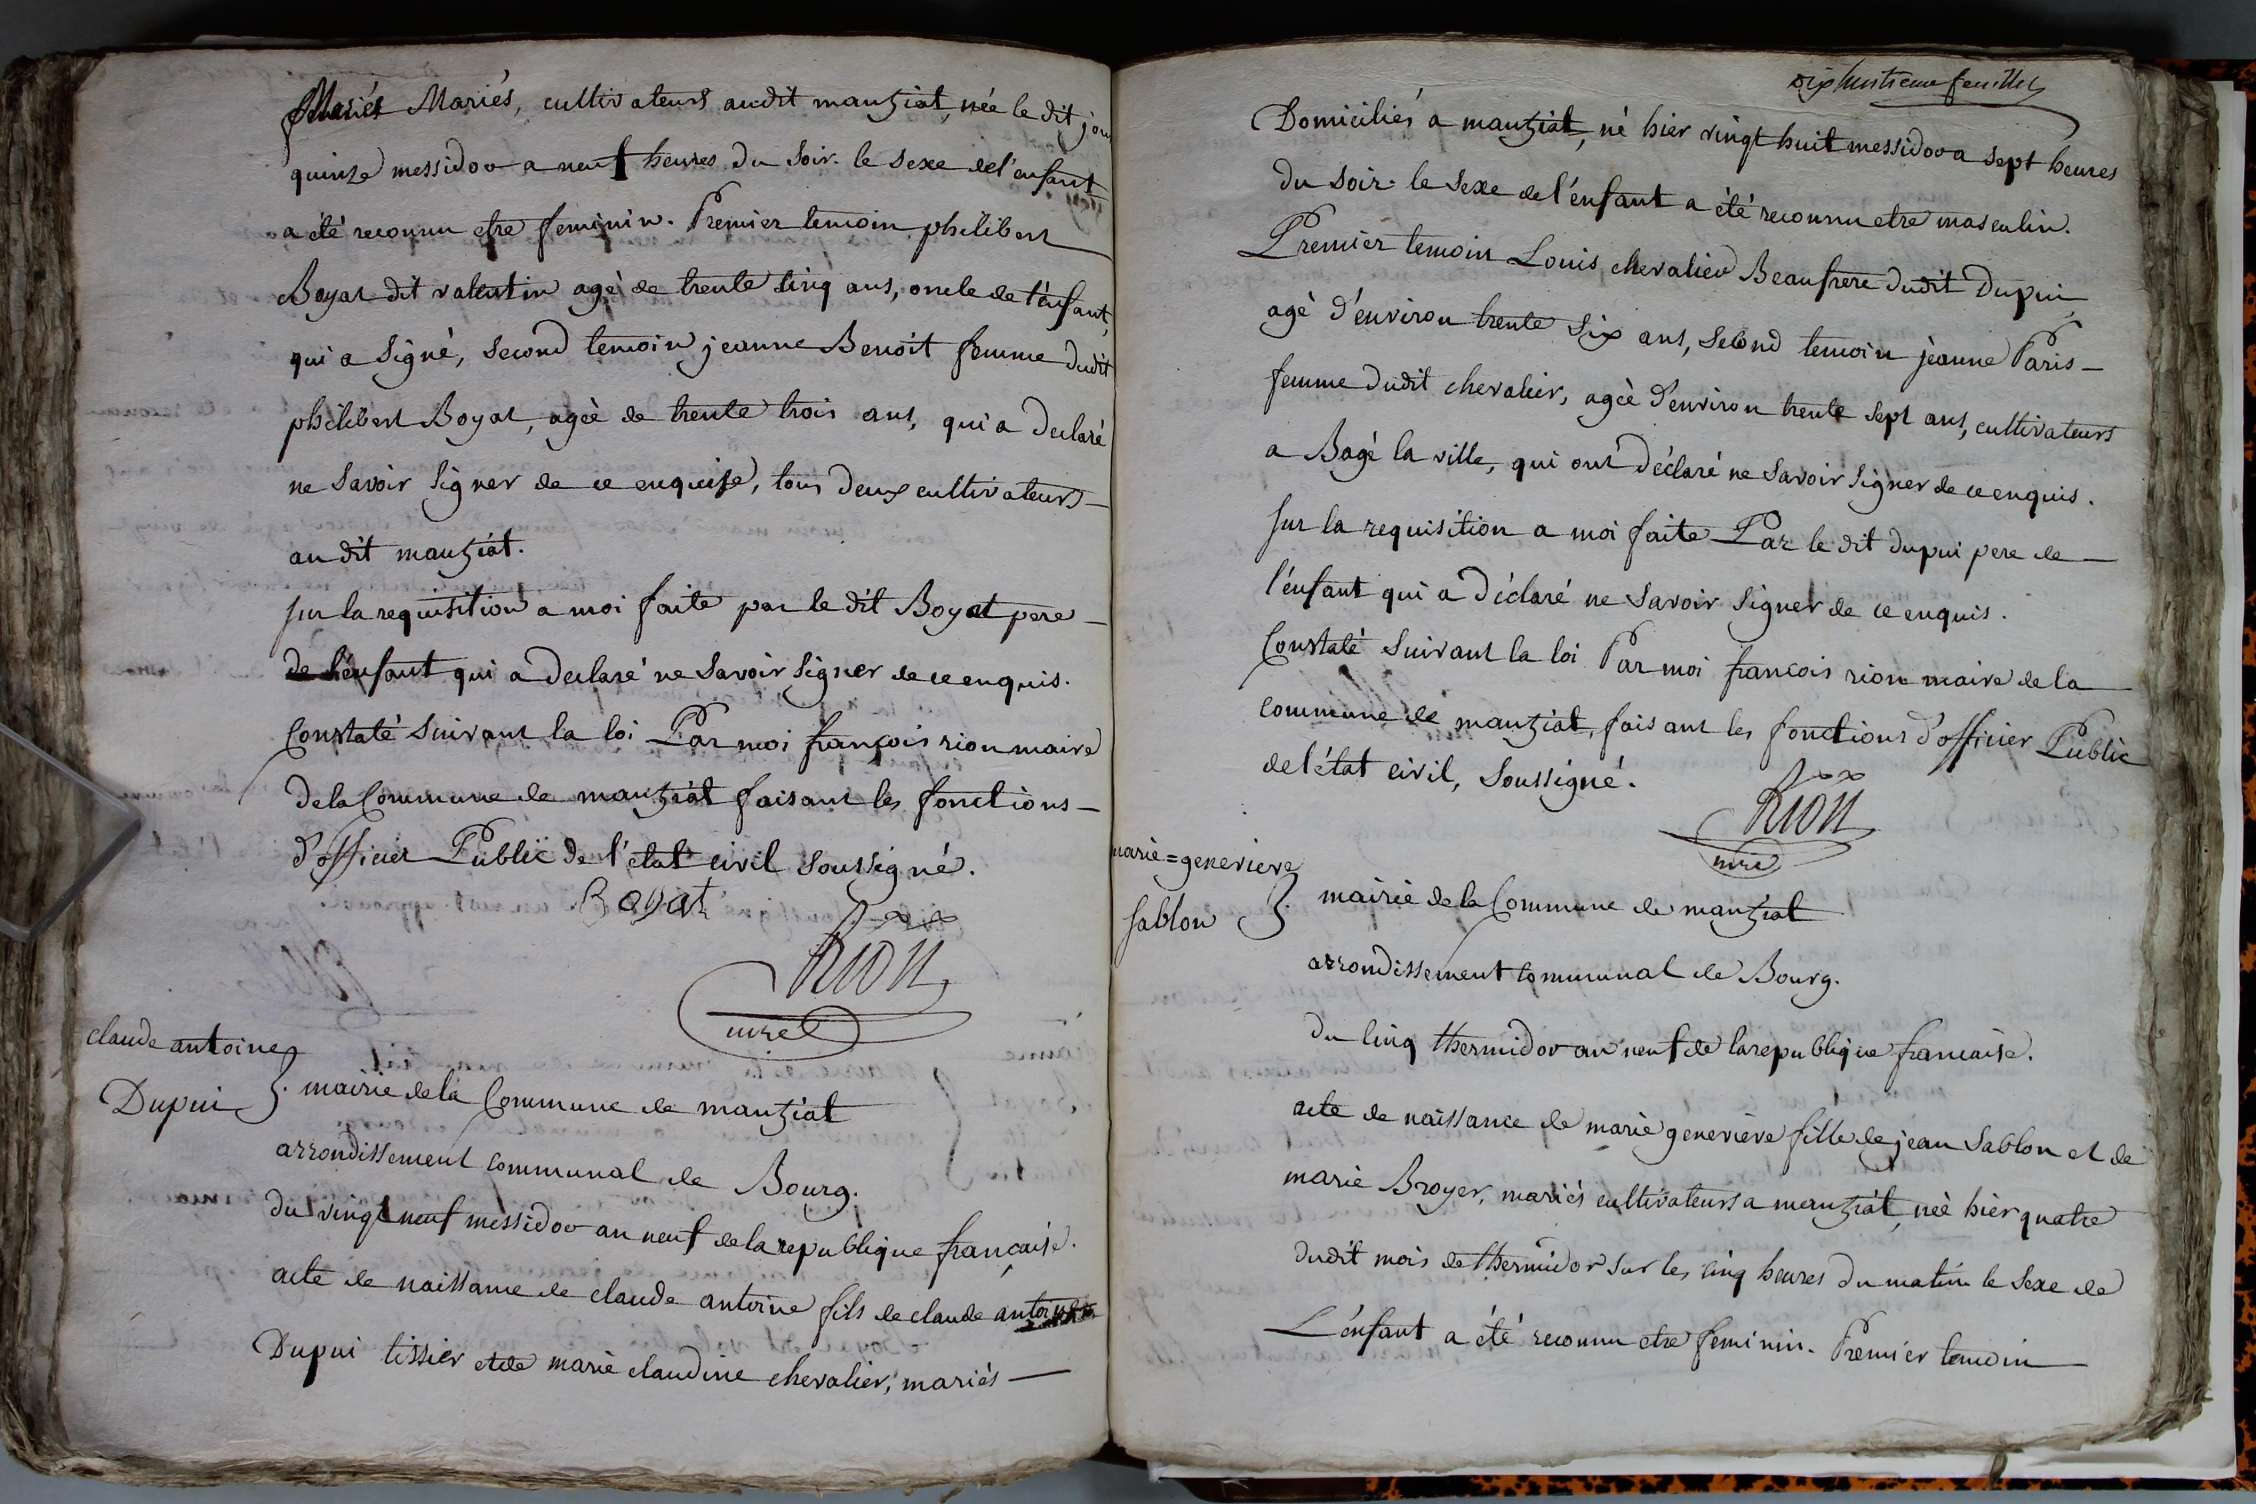 Mariés Mariés, cultivateurs audit mantziat, née le dit jour
quinze messidor a neuf heures du soir. le sexe de l'enfant
a été reconnu etre feminin. Premier temoin philibert
Boyat dit valentin agé de trente cinq ans, oncle de l'enfant,
qui a signé, second temoin jeanne Benoit femme dudit
philibert Boyat, ageé de trente trois ans, qui a declaré
ne savoir signer de ce enquise, tous deux cultivateurs
au dit mantziat.
sur la requisition a moi faite par le dit Boyat pere
de l'enfant qui a declaré ne savoir signer de ce enquis.
Constaté suivant la loi Par moi françois rion maire
de la Commune de mantziat faisant les fonctions
d'officier Public de l'etat civil soussigné.
Boyat
Rion
mre
claude antoine
Dupui
mairie de la Commune de mantziat
arrondissement communal de Bourg.
du vingt neuf messidor an neuf de la republique française.
acte de naissance de claude antoine fils de claude antoine
Dupui tissier et de marie claudine chevalier, mariés
dix huitieme feuillet
Domiciliés a mantziat, né hier vingt huit messidor a sept heures
du soir. le sexe de l'énfant a été reconnu etre masculin.
Premier temoin Louis chevalier Beaufrere dudit Dupui
agé d'environ trente six ans, second temoin jeanne Paris
femme dudit chevalier, ageé d'environ trente sept ans, cultivateurs
a Bagé la ville, qui ont déclaré ne savoir signer de ce enquis.
sur la requisition a moi faite Par le dit dupui pere de
l'énfant qui a déclaré ne savoir signer de ce enquis.
Constaté suivant la loi Par moi françois rion maire de la
commune de mantziat, faisant les fonctions d'officier Public
de l'état civil, soussigné.
Rion
mre
marie=genevieve
sablon
mairie de la Commune de mantziat
arrondissement communal de Bourg.
du cinq thermidor an neuf de la republique francaise.
acte de naissance de marie genevieve fille de jean sablon et de
marie Broyer, mariés cultivateurs a mantziat, neé hier quatre
dudit mois de thermidor sur les cinq heures du matin le sexe de
L'énfant a été reconnu etre feminin. Premier temoin